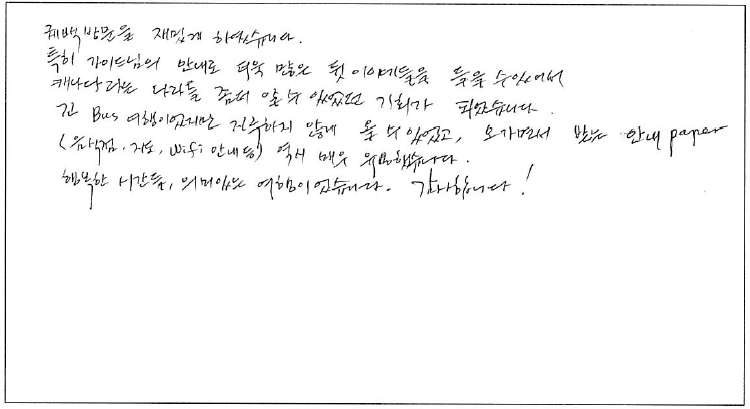 퀘백 방문을 재밌게 하였습니다.
특히 가이드님의 안내로 더욱 많은 뒷 이야기들을 들을 수 있어서
캐나다라는 나라를 좀더 알 수 있었던 기회가 되었습니다.
긴 Bus 여행이었지만 지루하지 않게 올 수 있었고, 오가면서 받는 안내 paper
(음식점, 지도, Wifi 안내 등) 역시 매우 유용했습니다.
행복한 시간들, 의미있는 여행이었습니다. 감사합니다!